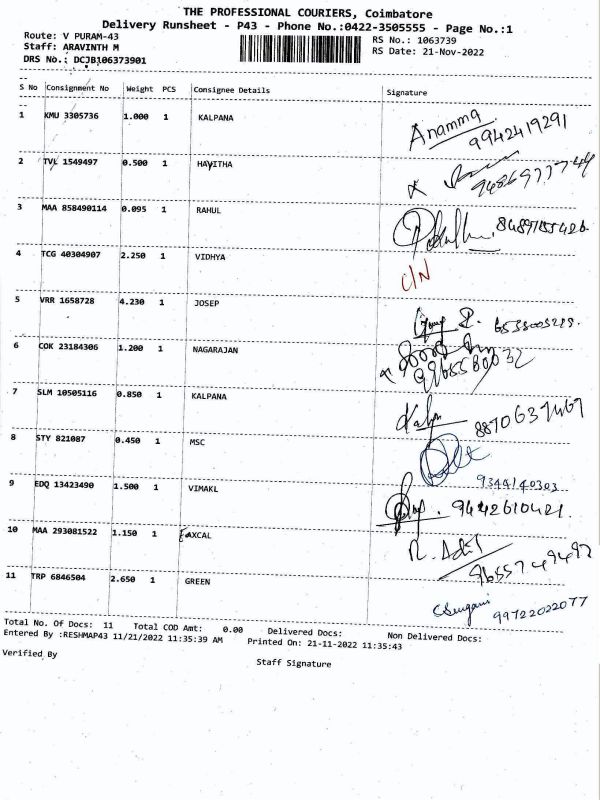 THE PROFESSIONAL COURIERS, Coimbatore
Delivery Runsheet - P43 - Phone No.:0422-3505555 - Page No.:1
Route: V PURAM-43
RS No.: 1063739
Staff: ARAVINTH M
RS Date: 21-Nov-2022
DRS No.: DCJB106373901
S No Consignment No Weight PCS Consignee Details Signature
1 KMU 3305736 1.000 1 KALPANA Anamma 9942419291
2 TVL 1549497 0.500 1 HAVITHA
3 MAA 858490114 0.095 1 RAHUL
4 TCG 40304907 2.250 1 VIDHYA C/N
5 VRR 1658728 4.230 1 JOSEP
6 COK 23184306 1.200 1 NAGARAJAN
7 SLM 10505116 0.850 1 KALPANA
8 STY 821087 0.450 1 MSC 9344140303
9 EDQ 13423490 1.500 1 VIMAKL 9442610421.
10 MAA 293081522 1.150 1 EAXCAL
11 TRP 6846504 2.650 1 GREEN 99722022077
Total No. Of Docs: 11 Total COD Amt: 0.00 Delivered Docs: Non Delivered Docs:
Entered By :RESHMAP43 11/21/2022 11:35:39 AM Printed On: 21-11-2022 11:35:43
Verified By
Staff Signature